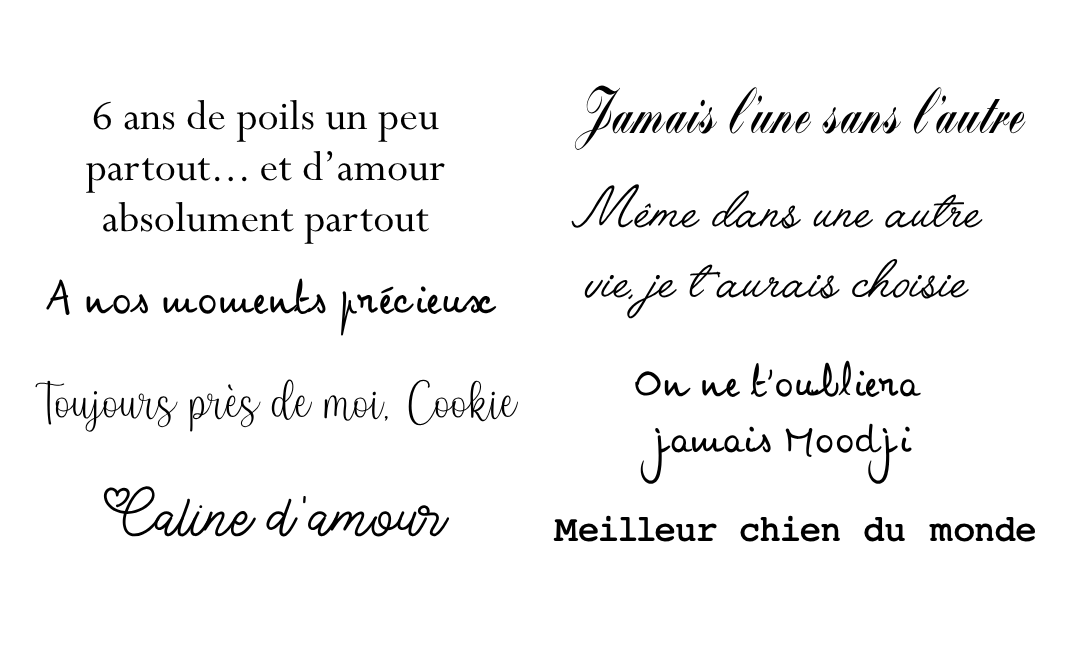 6 ans de poils un peu
partout... et d'amour
absolument partout
A nos moments précieux
Toujours près de moi, Cookie
Caline d'amour
Jamais l'une sans l'autre
Même dans une autre
vie, je t'aurais choisie
On ne t'oubliera
jamais Moodji
Meilleur chien du monde